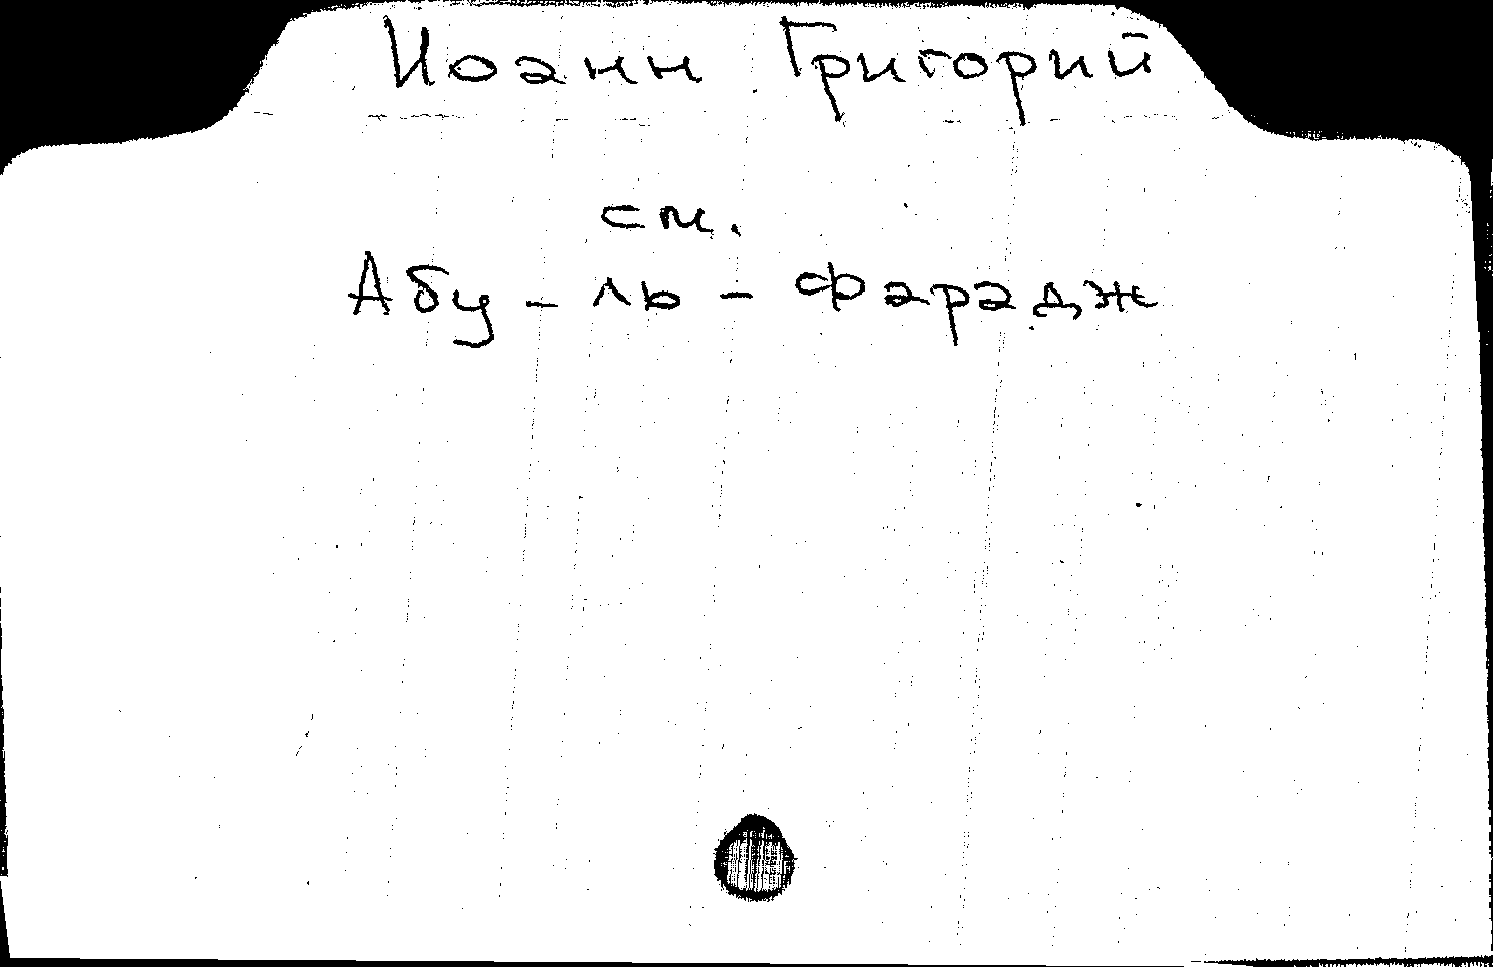 Иоанн Григорий
см.
Абу-ль-Фарадж